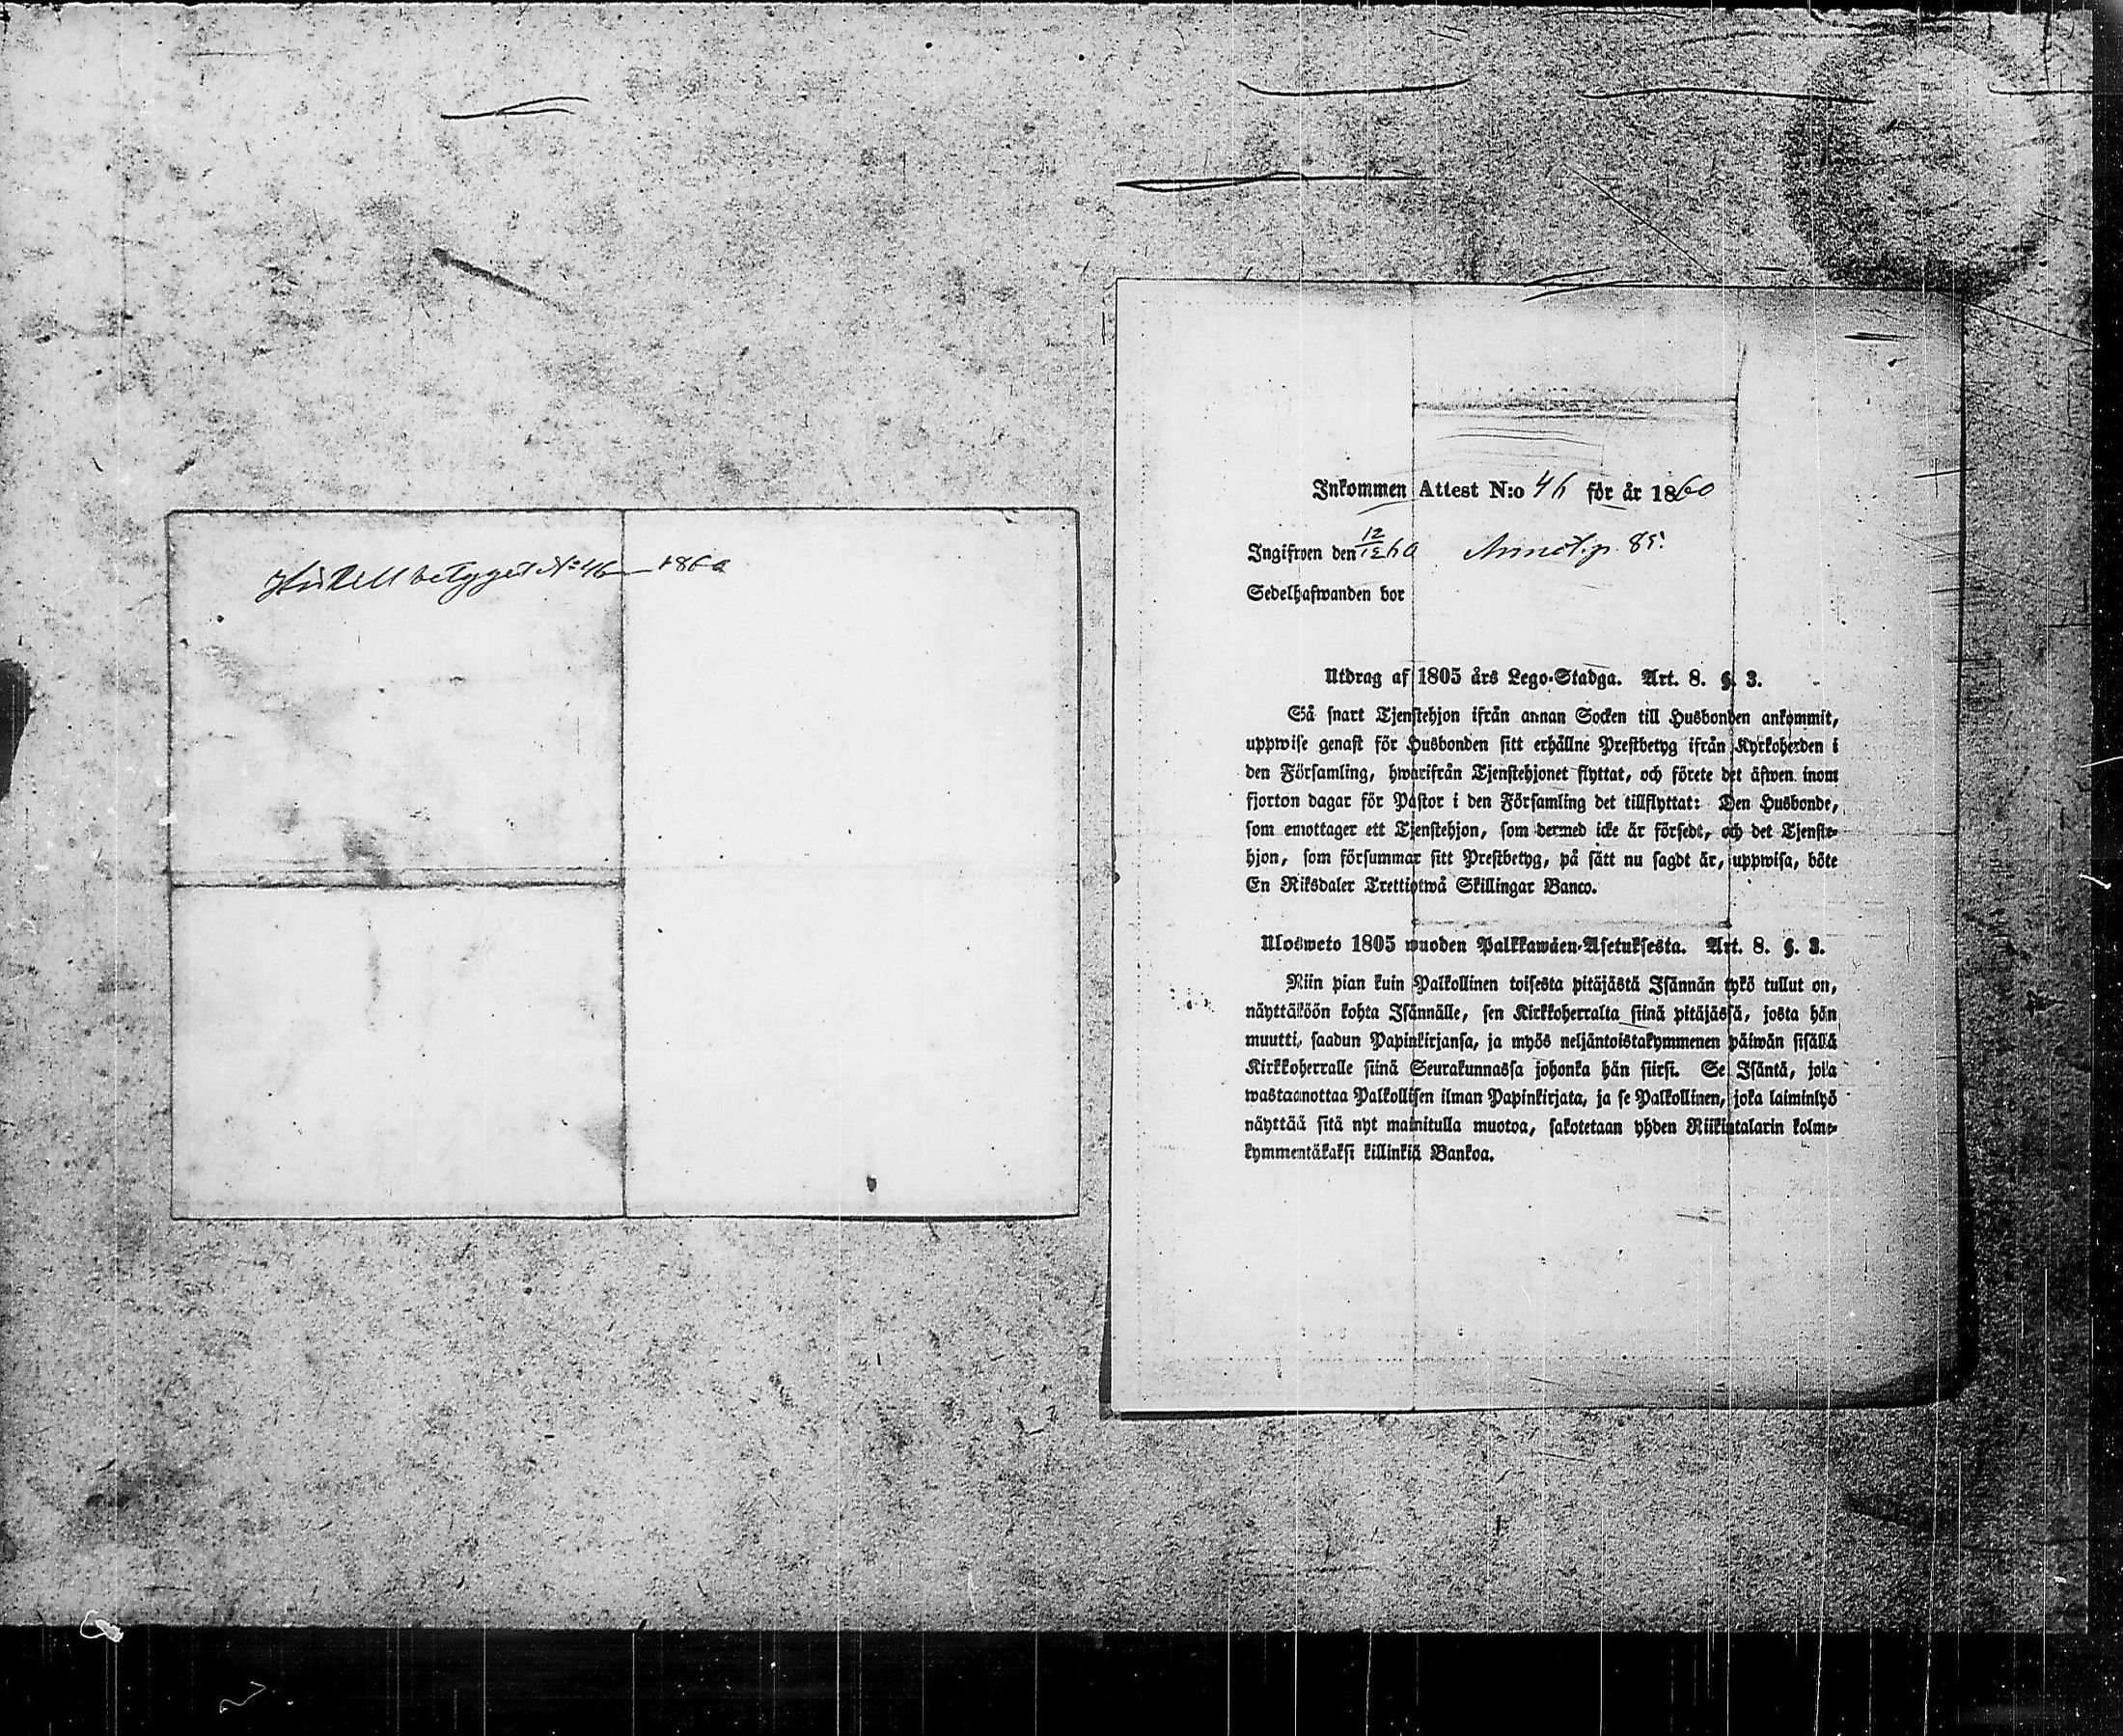 Hör till betyget N:o 46 1860
Inkommen Attest N:o 46 för år 1860
Ingifwen den 12/12 60 Annot. p. 85.
Sedelhafwanden bor
Utdrag af 1805 års Lego-Stadga. Art. 8. §. 3.
Så snart Tjenstehjon ifrån annan Socken till Husbonden ankommit,
uppwise genast för Husbonden sitt erhållne Prestbetyg ifrån Kyrkoherden i
den Församling, hwarifrån Tjenstehjonet flyttat, och förete det äfwen inom
fjorton dagar för Pastor i den Församling det tillflyttat: Den Husbonde,
som emottager ett Tjenstehjon, som dermed icke är försedt, och det Tjenste-
hjon, som försummar sitt Prestbetyg, på sätt nu sagdt är, uppwisa, böte
En Riksdaler Trettiotwå Skillingar Banco.
Ulosweto 1805 wuoden Palkkawäen-Asetuksesta. Art. 8. §. 3.
Niin pian kuin Palkollinen toisesta pitäjästä Isännän tykö tullut on,
näyttäköön kohta Isännälle, sen Kirkkoherralta siinä pitäjässä, josta hän
muutti, saadun Papinkirjansa, ja myös neljäntoistakymmenen päiwän sisällä
Kirkkoherralle siinä Seurakunnassa johonka hän siirsi. Se Isäntä, joka
wastaanottaa Palkollisen ilman Papinkirjata, ja se Palkollinen, joka laiminlyö
näyttää sitä nyt mainitulla muotoa, sakotetaan yhden Riikintalarin kolme-
kymmentäkaksi killinkiä Bankoa.